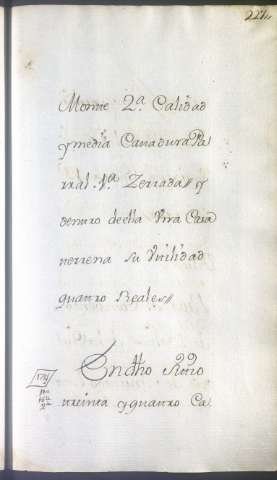 227
Monte 2ª Calidad
y media Cavadura Pa
rral 1ª Zerrada// y
dentro de ella Una Casa
terrena su Utilidad
quatro Reales//
En dho Sitio
treinta y quatro Ca